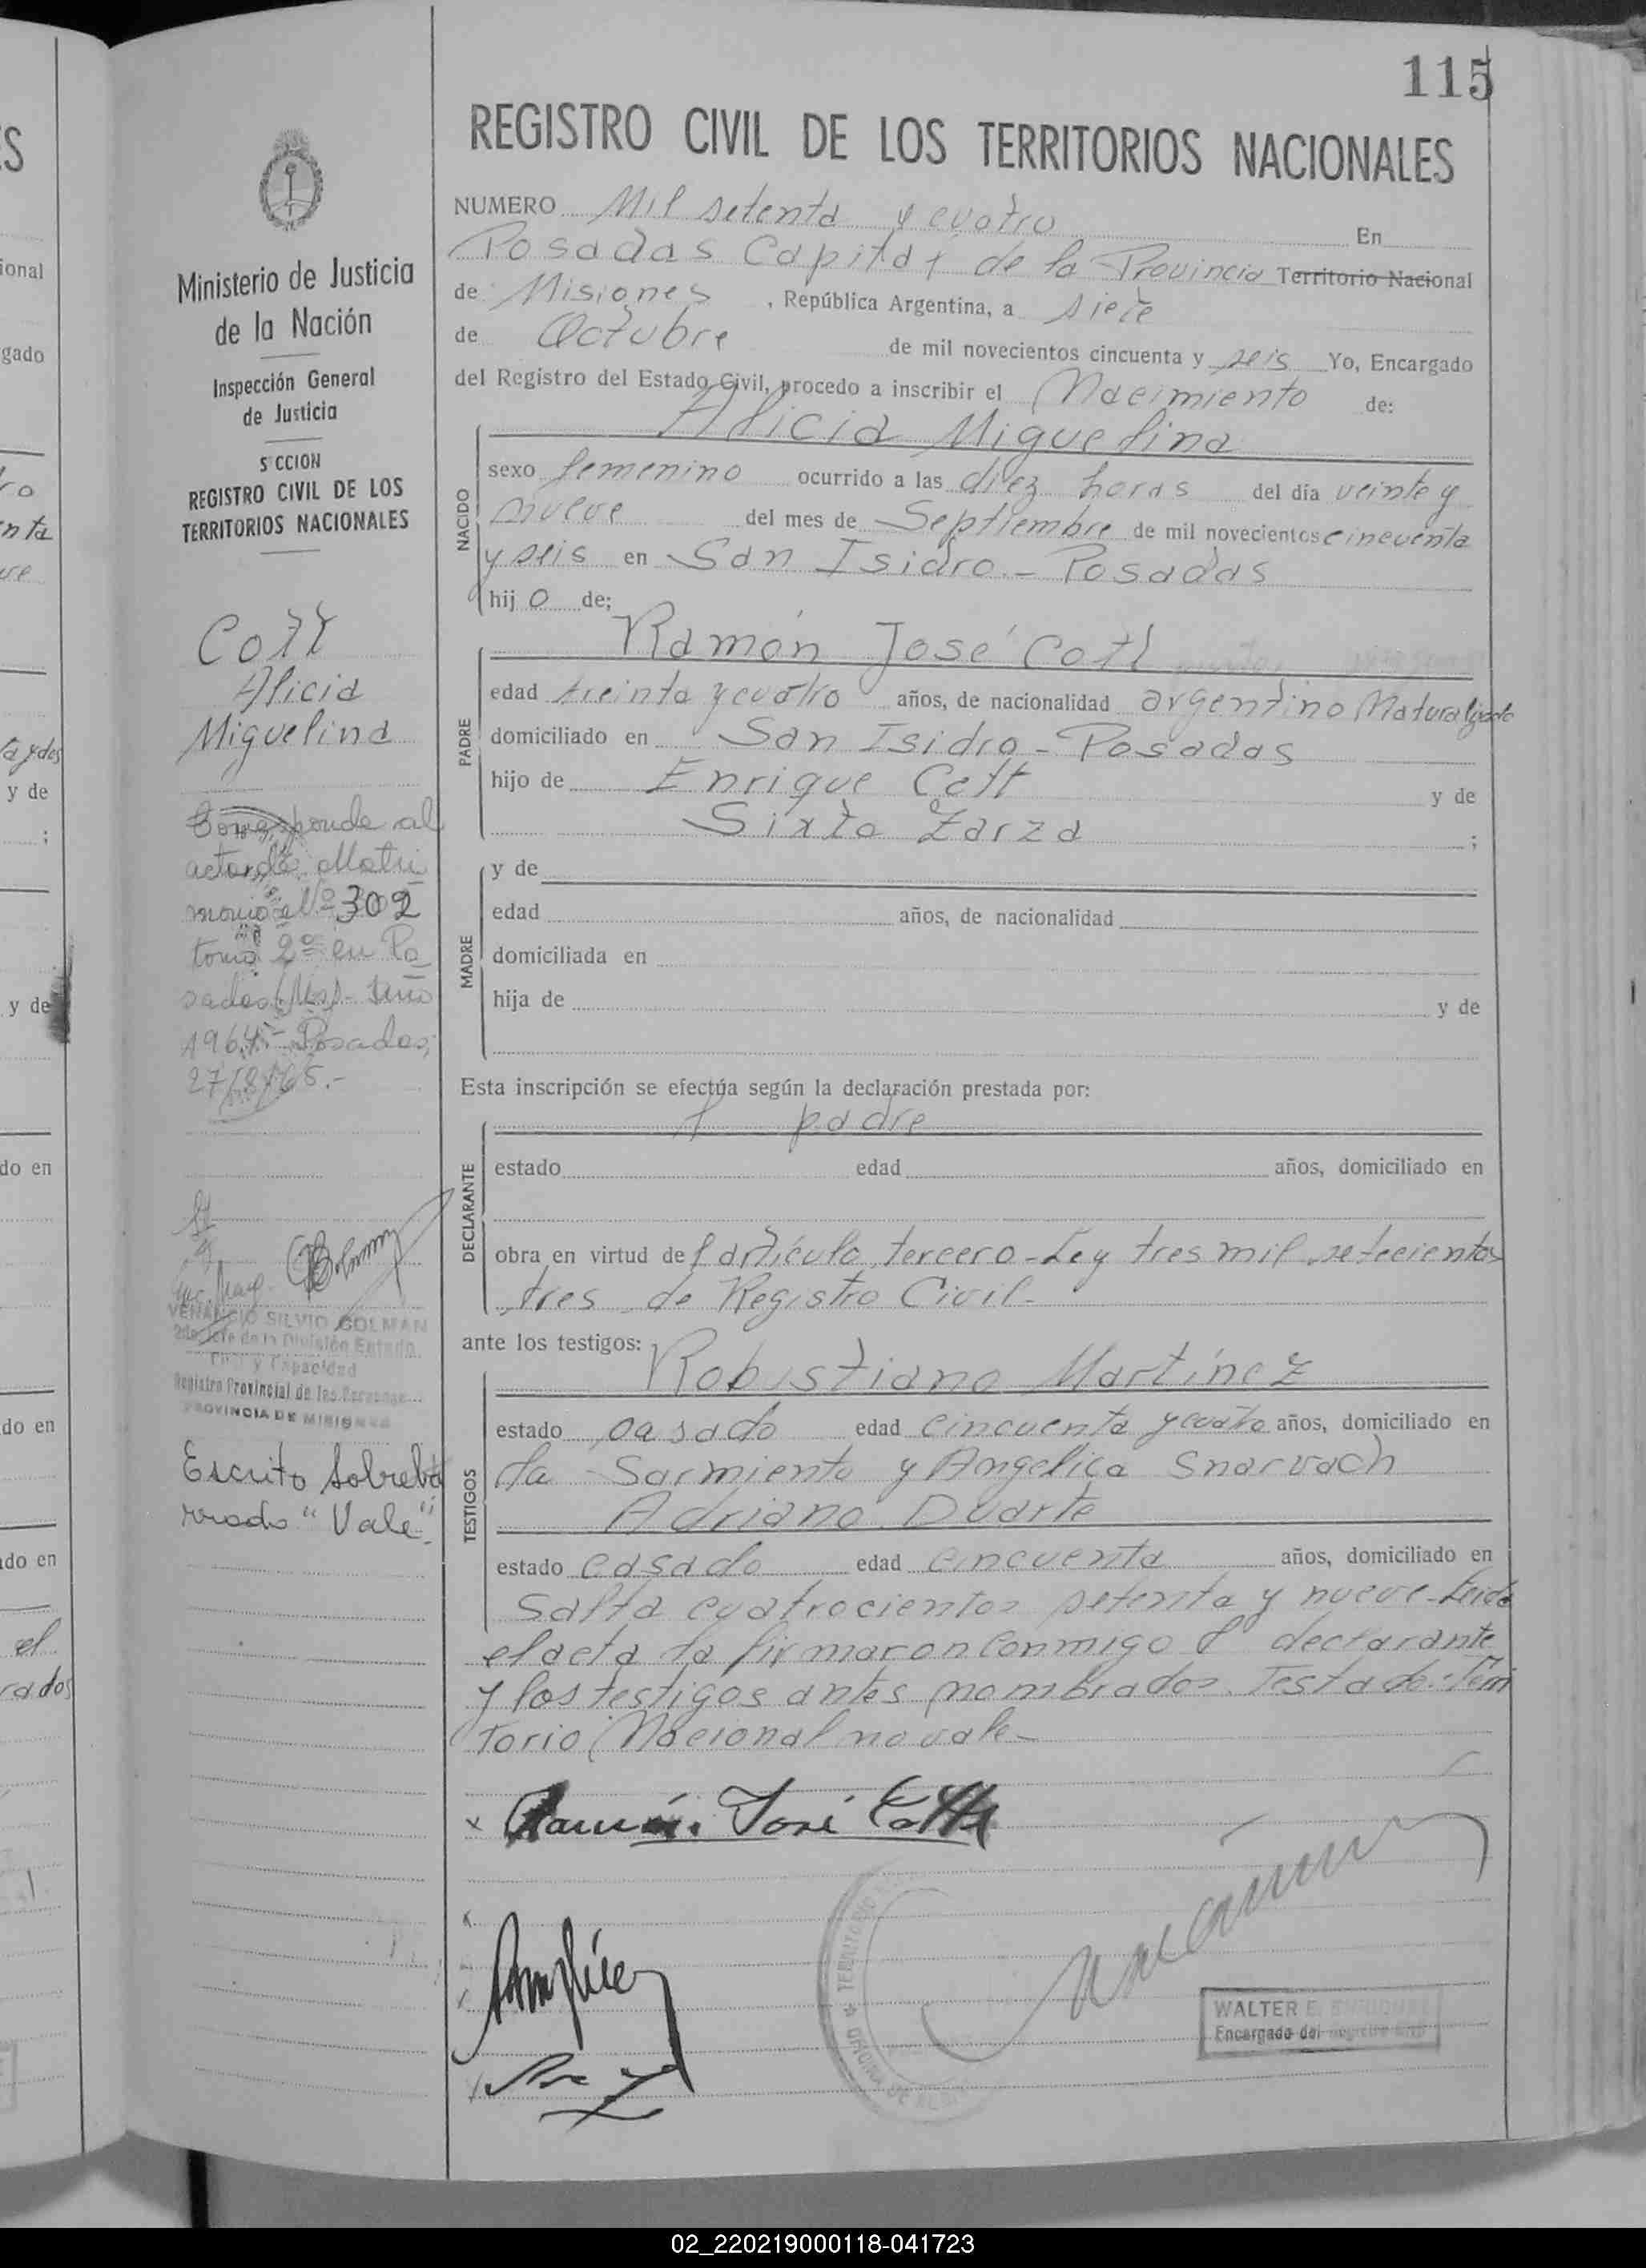 115
REGISTRO CIVIL DE LOS TERRITORIOS NACIONALES
NUMERO Mil setenta y cuatro En
Posadas Capital de la Provincia Territorio Nacional
de Misiones, República Argentina, a siete
de Octubre de mil novecientos cincuenta y seis Yo, Encargado
del Registro del Estado Civil, procedo a inscribir el Nacimiento de:
NACIDO
Alicia Miguelina
sexo femenino ocurrido a las diez horas del día veinte y
nueve del mes de Septiembre de mil novecientos cincuenta
y seis en San Isidro - Posadas
hij o de;
PADRE
Ramón José Cott
edad treinta y cuatro años, de nacionalidad argentino Naturalizado
domiciliado en San Isidro - Posadas
hijo de Enrique Cott y de
Sixta Zarza ;
MADRE
y de
edad años, de nacionalidad
domiciliada en
hija de y de
Esta inscripción se efectúa según la declaración prestada por:
DECLARANTE
el padre
estado edad años, domiciliado en
obra en virtud del artículo tercero - Ley tres mil setecientos
tres de Registro Civil -
ante los testigos:
TESTIGOS
Robustiano Martínez
estado casado edad cincuenta y cuatro años, domiciliado en
la Sarmiento y Angelica
Adriano Duarte
estado casado edad cincuenta años, domiciliado en
Salta cuatrocientos setenta y nueve - Leida
el acta la firmaron conmigo el declarante
y los testigos antes nombrados. Testado: Terri
torio Nacional no vale -
Ramón José Cott
WALTER E.
Encargado del Registro Civil
Ministerio de Justicia
de la Nación
Inspección General
de Justicia
S CCION
REGISTRO CIVIL DE LOS
TERRITORIOS NACIONALES
Cott
Alicia
Miguelina
Corresponde al
acta de Matri
monio Nº 302
tomo 2º en Po
sadas (Mns) - Año
1964 - Posadas,
27/8/65.-
VENANCIO SILVIO GOLMAN
2do. Jefe de la División Estado
Civil y Capacidad
Registro Provincial de las Personas
PROVINCIA DE MISIONES
Escrito sobrebo
rrado "Vale".
02_220219000118-041723